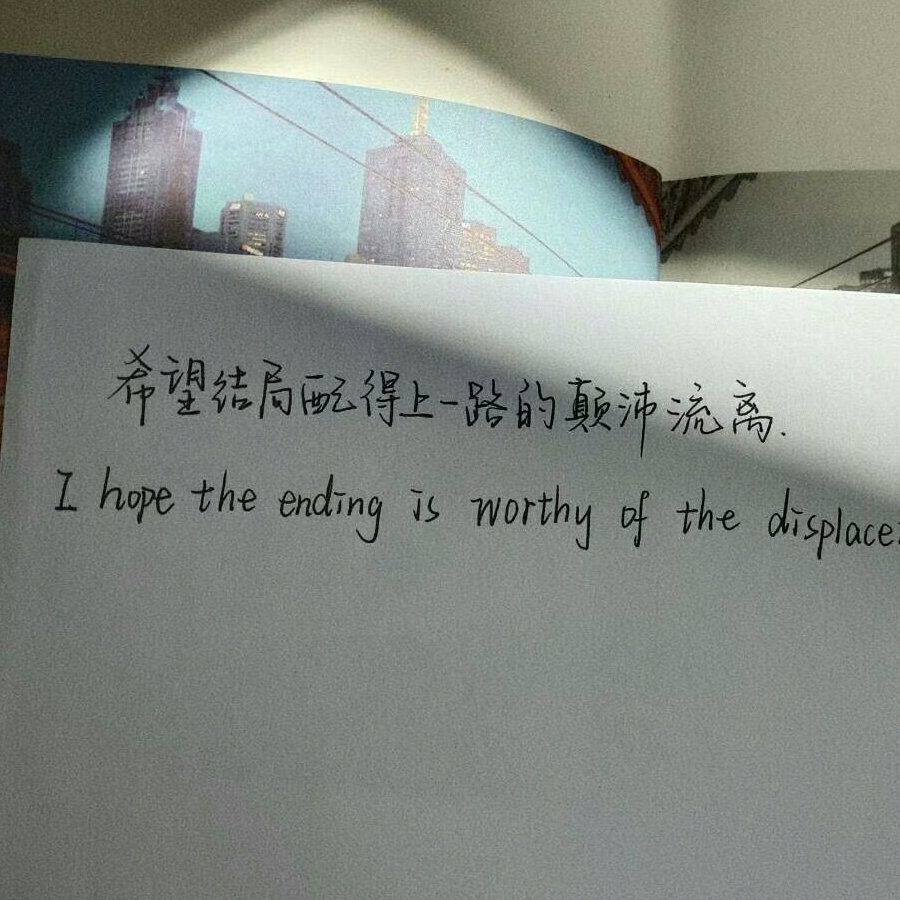 希望结局配得上一路的颠沛流离.
I hope the ending is worthy of the displace